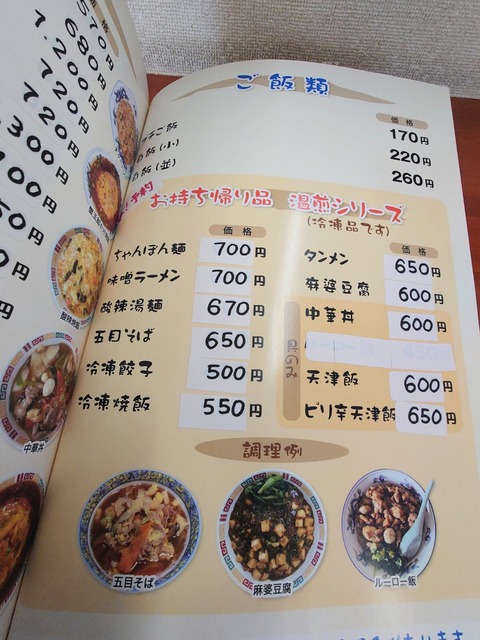 570円
680円
1,200円
720円
720円
300円
中華丼
ご飯類
価格
170円
ご飯(小) 220円
ご飯(並) 260円
お持ち帰り品 温煎シリーズ
(冷凍品です)
価格
ちゃんぽん麺 700円
味噌ラーメン 700円
酸辣湯麺 670円
五目そば 650円
冷凍餃子 500円
冷凍焼飯 550円
価格
タンメン 650円
麻婆豆腐 600円
具のみ
中華丼 600円
天津飯 600円
ピリ辛天津飯 650円
調理例
五目そば
麻婆豆腐
ルーロー飯